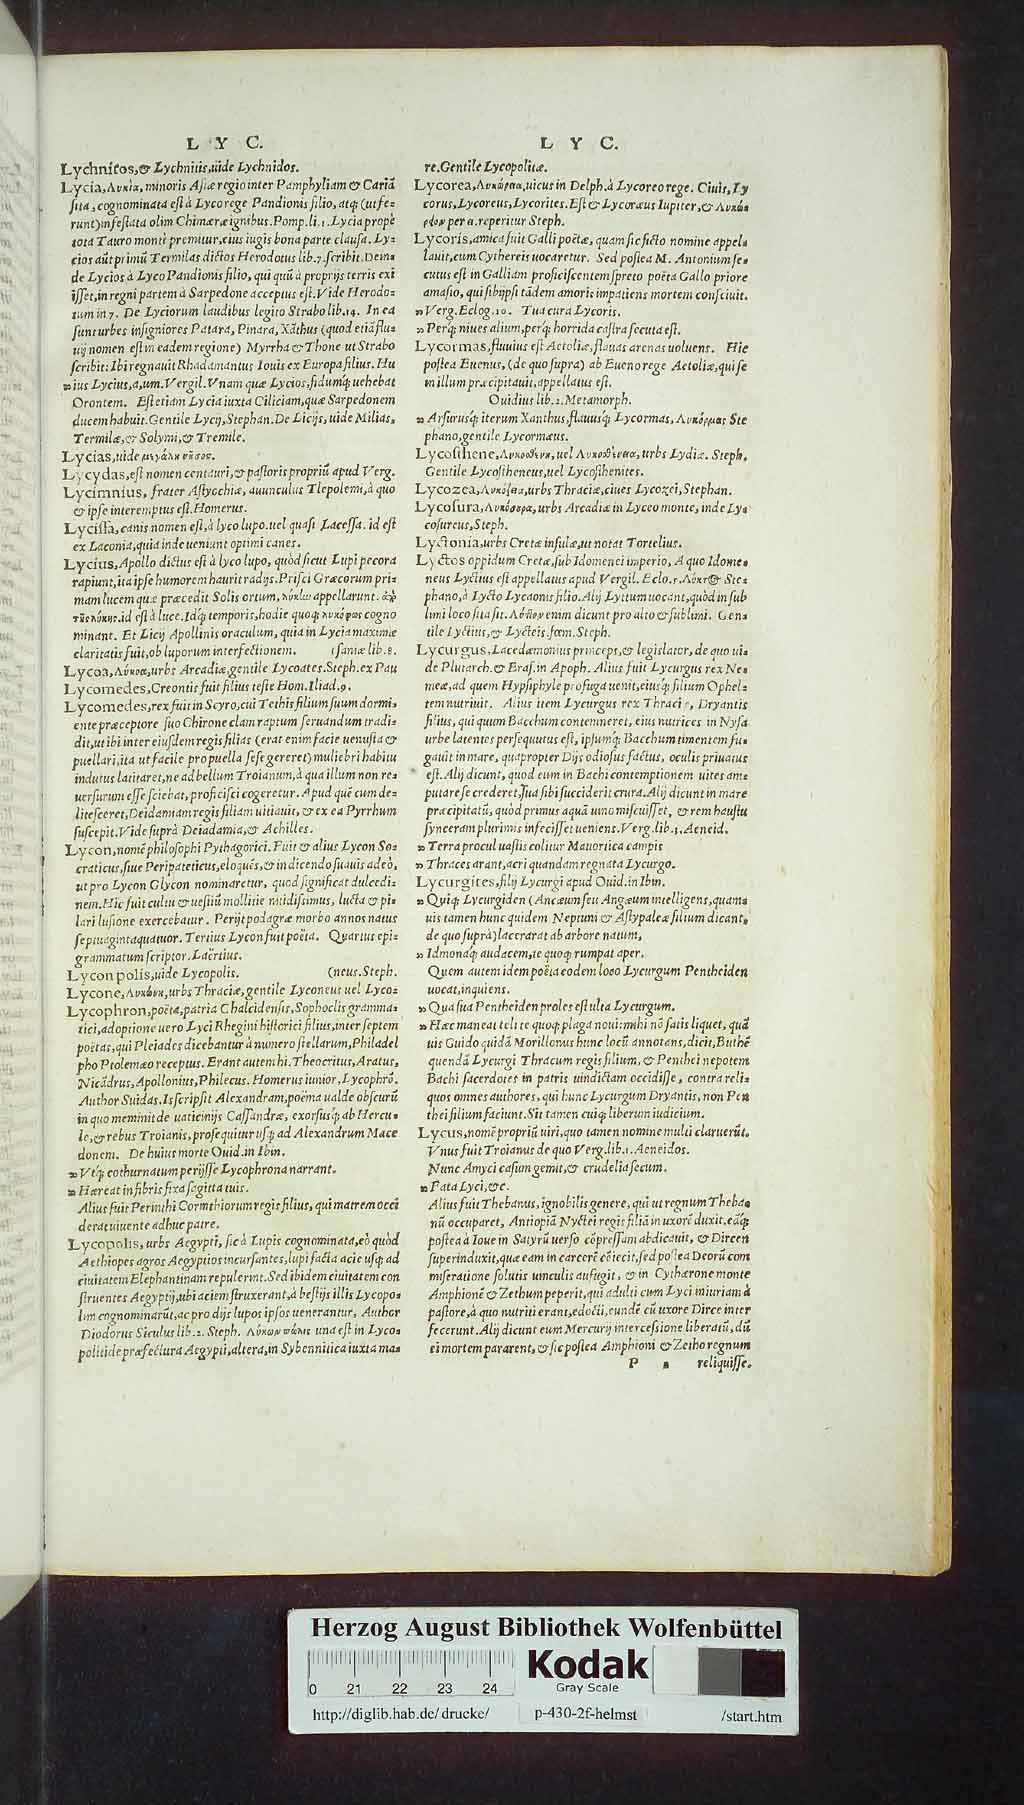 L Y C.
Lychnitos,& Lychnitis,uide Lychnidos.
Lycia,Λυκία, minoris Asiæ regio inter Pamphyliam & Cariā
sita, cognominata est à Lyco rege Pandionis filio, atq; (ut fe-
runt) infestata olim Chimæræ ignibus. Pomp.li.1.Lycia prope
tota Tauro monte premitur,eius iugis bona parte clausa. Ly-
cios aūt primū Termilas dictos Herodotus lib.7.scribit.Dein-
de Lycios à Lyco Pandionis filio, qui quū à proprijs terris exi
isset,in regni partem à Sarpedone acceptus est.Vide Herodo-
tum in 7. De Lyciorum laudibus legito Strabo lib.14. In ea
sunt urbes insigniores Patara, Pinara, Xāthus (quod etiā flu-
uij nomen est in eadem regione) Myrrha & Thone ut Strabo
scribit:Ibi regnauit Rhadamantus Iouis ex Europa filius. Hu
ius Lycius,a,um.Vergil.Vnam quæ Lycios,fidumq; uehebat
Orontem. Est etiam Lycia iuxta Ciliciam,quæ Sarpedonem
ducem habuit.Gentile Lycij,Stephan.De Licijs,uide Milias,
Termilæ,& Solymi,& Tremile.
Lycias,uide
Lycydas,est nomen centauri,& pastoris propriū apud Verg.
Lycimnius, frater Astyochiæ, auunculus Tlepolemi,à quo
& ipse interemptus est.Homerus.
Lycissa,canis nomen est,à lyco lupo.uel quasi Lacessa. id est
ex Laconia,quia inde ueniunt optimi canes.
Lycius,Apollo dictus est à lyco lupo, quòd sicut Lupi pecora
rapiunt,ita ipse humorem haurit radijs.Prisci Græcorum pri-
mam lucem quæ præcedit Solis ortum, λύκlω appellarunt. ἀπὸ
τῆς λύκης.id est à luce.Idq; temporis,hodie quoq; λυκόφως cogno
minant. Et Licij Apollinis oraculum, quia in Lycia maximæ
claritatis fuit,ob luporum interfectionem. (saniæ lib.8.
Lycoa,Λύκοα,urbs Arcadiæ,gentile Lycoates.Steph.ex Pau
Lycomedes,Creontis fuit filius teste Hom.Iliad.9.
Lycomedes,rex fuit in Scyro,cui Tethis filium suum dormi-
ente præceptore suo Chirone clam raptum seruandum tradi-
dit,ut ibi inter eiusdem regis filias (erat enim facie uenusta &
puellari,ita ut facile pro puella sese gereret) muliebri habitu
indutus latitaret,ne ad bellum Troianum,à qua illum non re-
uersurum esse sciebat, proficisci cogeretur. Apud quē cum de-
litesceret,Deidamiam regis filiam uitiauit, & ex ea Pyrrhum
suscepit.Vide suprà Deiadamia,& Achilles.
Lycon,nomē philosophi Pythagorici. Fuit & alius Lycon So-
craticus,siue Peripateticus,eloquēs,& in dicendo suauis adeò,
ut pro Lycon Glycon nominaretur, quod significat dulcedi-
nem.Hic fuit cultu & uestiū mollitie nitidissimus, lucta & pi-
lari lusione exercebatur. Perijt podagræ morbo annos natus
septuagintaquatuor. Tertius Lycon fuit poëta. Quartus epi-
grammatum scriptor.Laërtius.
Lycon polis,uide Lycopolis. (neus.Steph.
Lycone,Λυκώνη,urbs Thraciæ,gentile Lyconeus uel Lyco-
Lycophron,poëta,patria Chalcidensis,Sophoclis gramma-
tici,adoptione uero Lyci Rhegini historici filius,inter septem
poëtas,qui Pleiades dicebantur à numero stellarum,Philadel
pho Ptolemæo receptus.Erant autem hi.Theocritus,Aratus,
Nicādrus,Apollonius,Philecus. Homerus iunior,Lycophrō.
Author Suidas.Is scripsit Alexandram,poëma ualde obscurū
in quo meminit de uaticinijs Cassandræ, exorsusq; ab Hercu-
le,& rebus Troianis,prosequitur usq; ad Alexandrum Mace
donem. De huius morte Ouid.in Ibin.
Vtq; cothurnatum perijsse Lycophrona narrant.
Hæreat in fibris fixa sagitta tuis.
Alius fuit Perinthi Corinthiorum regis filius, qui matrem occi
derat uiuente adhuc patre.
Lycopolis, urbs Aegypti, sic à Lupis cognominata,eò quòd
Aethiopes agros Aegyptios incursantes,lupi facta acie usq; ad
ciuitatem Elephantinam repulerint.Sed ibidem ciuitatem con
struentes Aegyptij,ubi aciem struxerant,à bestijs illis Lycopo-
lim cognominarūt,ac pro dijs lupos ipsos uenerantur, Author
Diodorus Siculus lib.2. Steph. Λύκων πόλις una est in Lyco-
politide præfectura Aegypti,altera,in Sybennitica iuxta ma-
L Y C.
re.Gentile Lycopolitæ.
Lycorea,Λυκώρεια,uicus in Delph.à Lycoreo rege. Ciuis,Ly
corus,Lycoreus,Lycorites.Est & Lycoræus Iupiter,& Λυκώ-
ρειον per a.reperitur Steph.
Lycoris,amica fuit Galli poëtæ, quam sic ficto nomine appel-
lauit,cum Cythereis uocaretur. Sed postea M. Antonium se-
cutus est in Galliam proficiscentem spreto poëta Gallo priore
amasio, qui sibijpsi tādem amoris impatiens mortem consciuit.
Verg.Eclog.10. Tua cura Lycoris.
Perq; niues alium,perq; horrida castra secuta est.
Lycormas,fluuius est Aetoliæ,flauas arenas uoluens. Hic
postea Euenus, (de quo supra) ab Eueno rege Aetoliæ,qui se
in illum præcipitauit,appellatus est.
Ouidius lib.2.Metamorph.
Arsurusq; iterum Xanthus,flauusq; Lycormas, Λυκόρμας Ste
phano,gentile Lycormæus.
Lycosthene,Λυκοσθένη, uel Λυκοσθένεια,urbs Lydiæ. Steph.
Gentile Lycostheneus,uel Lycosthenites.
Lycozea,Λυκόζεια,urbs Thraciæ,ciues Lycozei,Stephan.
Lycosura,Λυκόσουρα,urbs Arcadiæ in Lyceo monte, inde Ly-
cosureus,Steph.
Lyctonia,urbs Cretæ insulæ,ut notat Tortelius.
Lyctos oppidum Cretæ,sub Idomenei imperio, A quo Idome-
neus Lyctius est appellatus apud Vergil. Eclo.5. Ste-
phano,à Lycto Lycaonis filio.Alij Lyttum uocant,quòd in sub
limi loco sita sit. enim dicunt pro alto & sublimi. Gen-
tile Lyctius,& Lycteis.fœm.Steph.
Lycurgus,Lacedæmonius princeps,& legislator, de quo ui-
de Plutarch.& Eras.in Apoph. Alius fuit Lycurgus rex Ne-
meæ,ad quem Hypsiphyle profuga uenit,eiusq; filium Ophel-
tem nutriuit. Alius item Lycurgus rex Thraciæ, Dryantis
filius, qui quum Bacchum contemneret, eius nutrices in Nysa
urbe latentes persequutus est, ipsumq; Bacchum timentem fu-
gauit in mare, quapropter Dijs odiosus factus, oculis priuatus
est.Alij dicunt, quod eum in Bachi contemptionem uites am-
putare se crederet,sua sibi succiderit crura.Alij dicunt in mare
præcipitatū, quòd primus aquā uino miscuisset, & rem haustu
synceram plurimis infecisset ueniens.Verg.lib.3.Aeneid.
Terra procul uastis colitur Mauortica campis
Thraces arant,acri quandam regnata Lycurgo.
Lycurgites,filij Lycurgi apud Ouid.in Ibin.
Quiq; Lycurgiden (Ancæum seu Angæum intelligens,quam-
uis tamen hunc quidem Neptuni & Astypaleæ filium dicant,
de quo suprà) lacerarat ab arbore natum,
Idmonaq; audacem,te quoq; rumpat aper.
Quem autem idem poëta eodem loco Lycurgum Pentheiden
uocat,inquiens.
Qua sua Pentheiden proles est ulta Lycurgum.
Hæc maneat teli te quoq; plaga noui:mihi nō satis liquet, quā
uis Guido quidā Morillonus hunc locū annotans,dicit,Buthē
quendā Lycurgi Thracum regis filium, & Penthei nepotem
Bachi sacerdotes in patris uindictam occidisse, contra reli-
quos omnes authores, qui hunc Lycurgum Dryantis, non Pen
thei filium faciunt.Sit tamen cuiq; liberum iudicium.
Lycus,nomē propriū uiri,quo tamen nomine multi claruerūt.
Vnus fuit Troianus de quo Verg.lib.1.Aeneidos.
Nunc Amyci casum gemit,& crudelia secum.
Fata Lyci,&c.
Alius fuit Thebanus, ignobilis genere, qui ut regnum Theba-
nū occuparet, Antiopā Nyctei regis filiā in uxorē duxit.eāq;
postea à Ioue in Satyrū uerso cōpressam abdicauit, & Dircen
superinduxit,quæ eam in carcerē cōiecit,sed postea Deorū com
miseratione solutis uinculis aufugit, & in Cythærone monte
Amphionē & Zethum peperit,qui adulti cum Lyci iniuriam à
pastore,à quo nutriti erant,edocti,eundē cū uxore Dirce inter
fecerunt.Alij dicunt eum Mercurij intercessione liberatū, dū
ei mortem pararent,& sic postea Amphioni & Zetho regnum
P 2 reliquisse.
Herzog August Bibliothek Wolfenbüttel
0 21 22 23 24
Kodak
Gray Scale
http://diglib.hab.de/drucke/ p-430-2f-helmst /start.htm